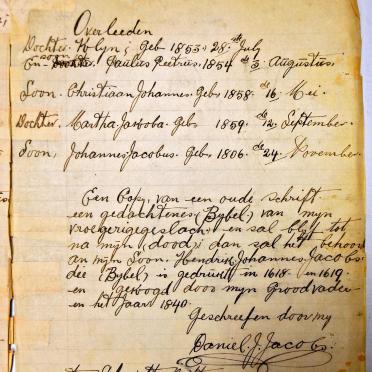 Overleeden
Dochter. Hlyn ; Geb 1853. 28. ste July
En Zoon Dochter. Paulus Petrus. 1854 de 3. Augustus.
Soon. Christiaan Johannes. Geb. 1858. de 16. Mei.
Dochter. Martha Jacoba. Geb 1859. de 12. September.
Soon, Johannes Jacobus. Geb. 1806. de 24. November.
Een Copy, van een oude schrift
een gedachtenes (Bybel) van myn
vroegerigegeslach en sal blyf tot
na myn (dood) ; dan sal het behoord
an myn Soon. Hendrik Johannes Jacobs
die (Bybel) is gedrukt in 1618 - in 1619
en door myn Groodvader
en het Jaar 1840.
Geschreefen door my
Daniel. J. Jacobs.